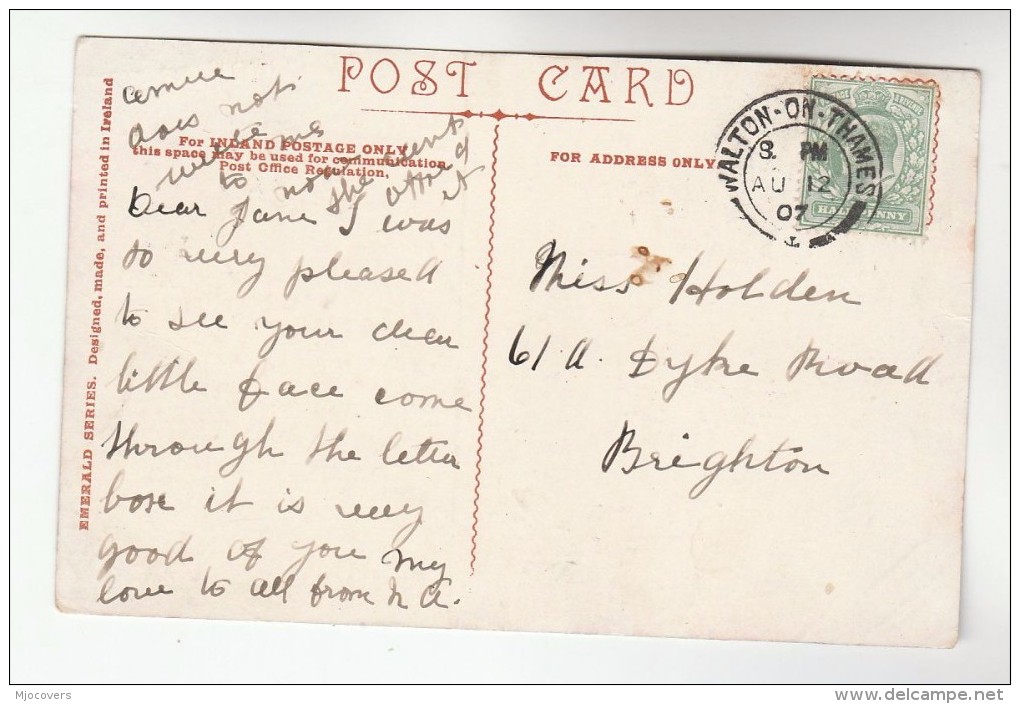 POST CARD
For INLAND POSTAGE ONLY
this space may be used for communication
Post Office Regulation,
FOR ADDRESS ONLY
EMERALD SERIES. Designed, made, and printed in Ireland
WALTON-ON-THAMES
8. PM
AU 12
07
1
HALFPENNY
does not
to
she
it
Dear Jane I was
so very pleased
to see your dear
little face come
through the letter
box it is very
good of you my
love to all from N A.
Miss Holden
61A. Dyke Road
Brighton
Mjocovers
delcampe.net